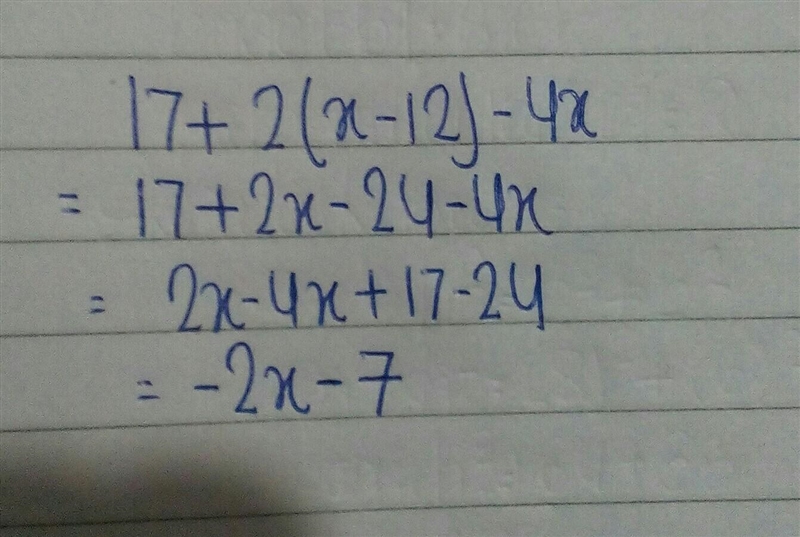 17+ 2(x-12)-4x
= 17+2x-24-4x
= 2x-4x+17-24
= -2x-7